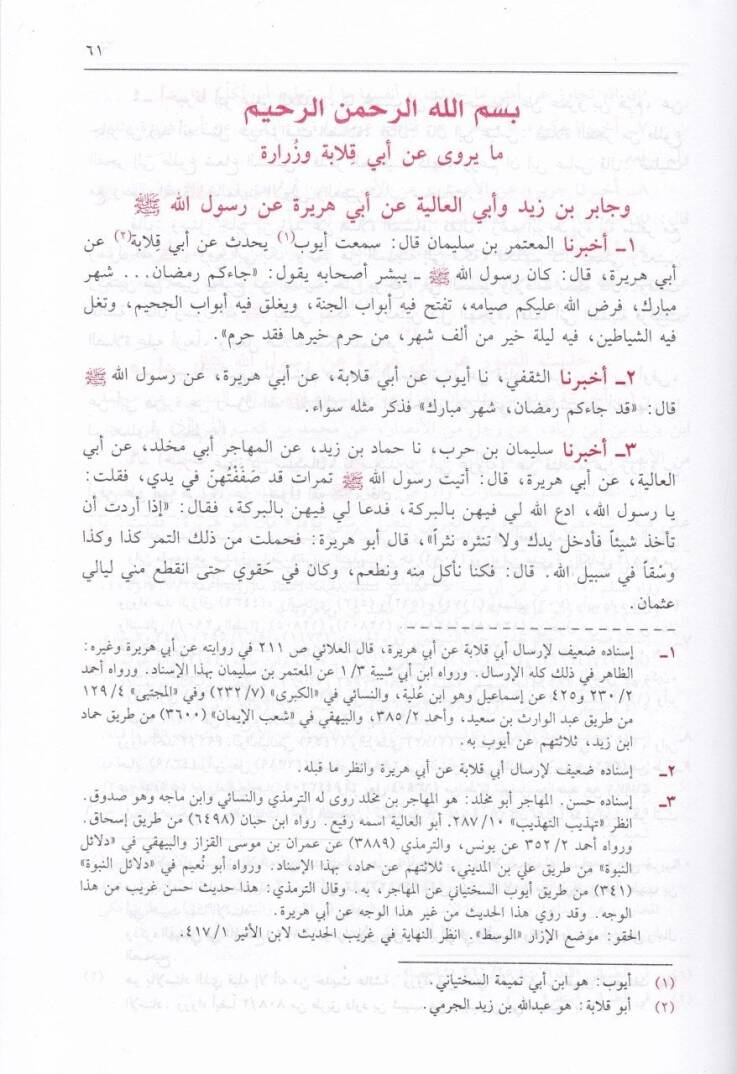 ٦١
بسم الله الرحمن الرحيم
ما يروى عن أبي قِلابة وزُرارة
وجابر بن زيد وأبي العالية عن أبي هريرة عن رسول الله ﷺ
١ـ أخبرنا المعتمر بن سليمان قال: سمعت أيوب(١) يحدث عن أبي قِلابة(٢) عن
أبي هريرة، قال: كان رسول الله ﷺ ـ يبشر أصحابه يقول: «جاءكم رمضان... شهر
مبارك، فرض الله عليكم صيامه، تفتح فيه أبواب الجنة، ويغلق فيه أبواب الجحيم، وتغل
فيه الشياطين، فيه ليلة خير من ألف شهر، من حرم خيرها فقد حرم».
٢ـ أخبرنا الثقفي، نا أيوب عن أبي قلابة، عن أبي هريرة، عن رسول الله ﷺ
قال: «قد جاءكم رمضان، شهر مبارك» فذكر مثله سواء.
٣ـ أخبرنا سليمان بن حرب، نا حماد بن زيد، عن المهاجر أبي مخلد، عن أبي
العالية، عن أبي هريرة، قال: أتيت رسول الله ﷺ تمرات قد صَفَفْتُهنّ في يدي، فقلت:
يا رسول الله، ادع الله لي فيهن بالبركة، فدعا لي فيهن بالبركة، فقال: «إذا أردت أن
تأخذ شيئاً فأدخل يدك ولا تنثره نثراً»، قال أبو هريرة: فحملت من ذلك التمر كذا وكذا
وسْقاً في سبيل الله. قال: فكنا نأكل منه ونطعم، وكان في حَقوي حتى انقطع مني ليالي
عثمان.
١ـ إسناده ضعيف لإرسال أبي قلابة عن أبي هريرة، قال العلائي ص ٢١١ في روايته عن أبي هريرة وغيره:
الظاهر في ذلك كله الإرسال. ورواه ابن أبي شيبة ١/٣ عن المعتمر بن سليمان بهذا الإسناد. ورواه أحمد
٢٣٠/٢ و٤٢٥ عن إسماعيل وهو ابن عُلية، والنسائي في «الكبرى» (٢٣٢/٧) وفي «المجتبى» ١٢٩/٤
من طريق عبد الوارث بن سعيد، وأحمد ٣٨٥/٢، والبيهقي في «شعب الإيمان» (٣٦٠٠) من طريق حماد
ابن زيد، ثلاثتهم عن أيوب به.
٢ـ إسناده ضعيف لإرسال أبي قلابة عن أبي هريرة وانظر ما قبله.
٣ـ إسناده حسن. المهاجر أبو مخلد: هو المهاجر بن مخلد روى له الترمذي والنسائي وابن ماجه وهو صدوق.
انظر «تهذيب التهذيب» ٢٨٧/١٠. أبو العالية اسمه رفيع. رواه ابن حبان (٦٤٩٨) من طريق إسحاق.
ورواه أحمد ٣٥٢/٢ عن يونس، والترمذي (٣٨٨٩) عن عمران بن موسى القزاز والبيهقي في «دلائل
النبوة» من طريق علي بن المديني، ثلاثتهم عن حماد، بهذا الإسناد. ورواه أبو نُعيم في «دلائل النبوة»
(٣٤١) من طريق أيوب السختياني عن المهاجر، به. وقال الترمذي: هذا حديث حسن غريب من هذا
الوجه. وقد روي هذا الحديث من غير هذا الوجه عن أبي هريرة.
الحقو: موضع الإزار «الوسط». انظر النهاية في غريب الحديث لابن الأثير ٤١٧/١.
(١) أيوب: هو ابن أبي تميمة السختياني.
(٢) أبو قلابة: هو عبدالله بن زيد الجرمي.